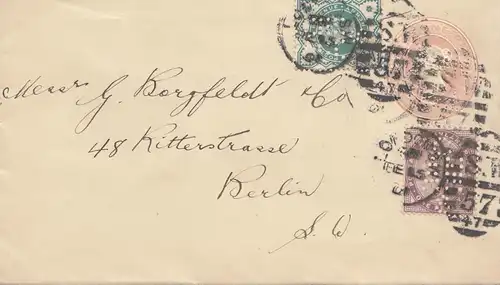 Messrs G. Borgfeldt & Co
48 Ritterstrasse
Berlin
S. W.